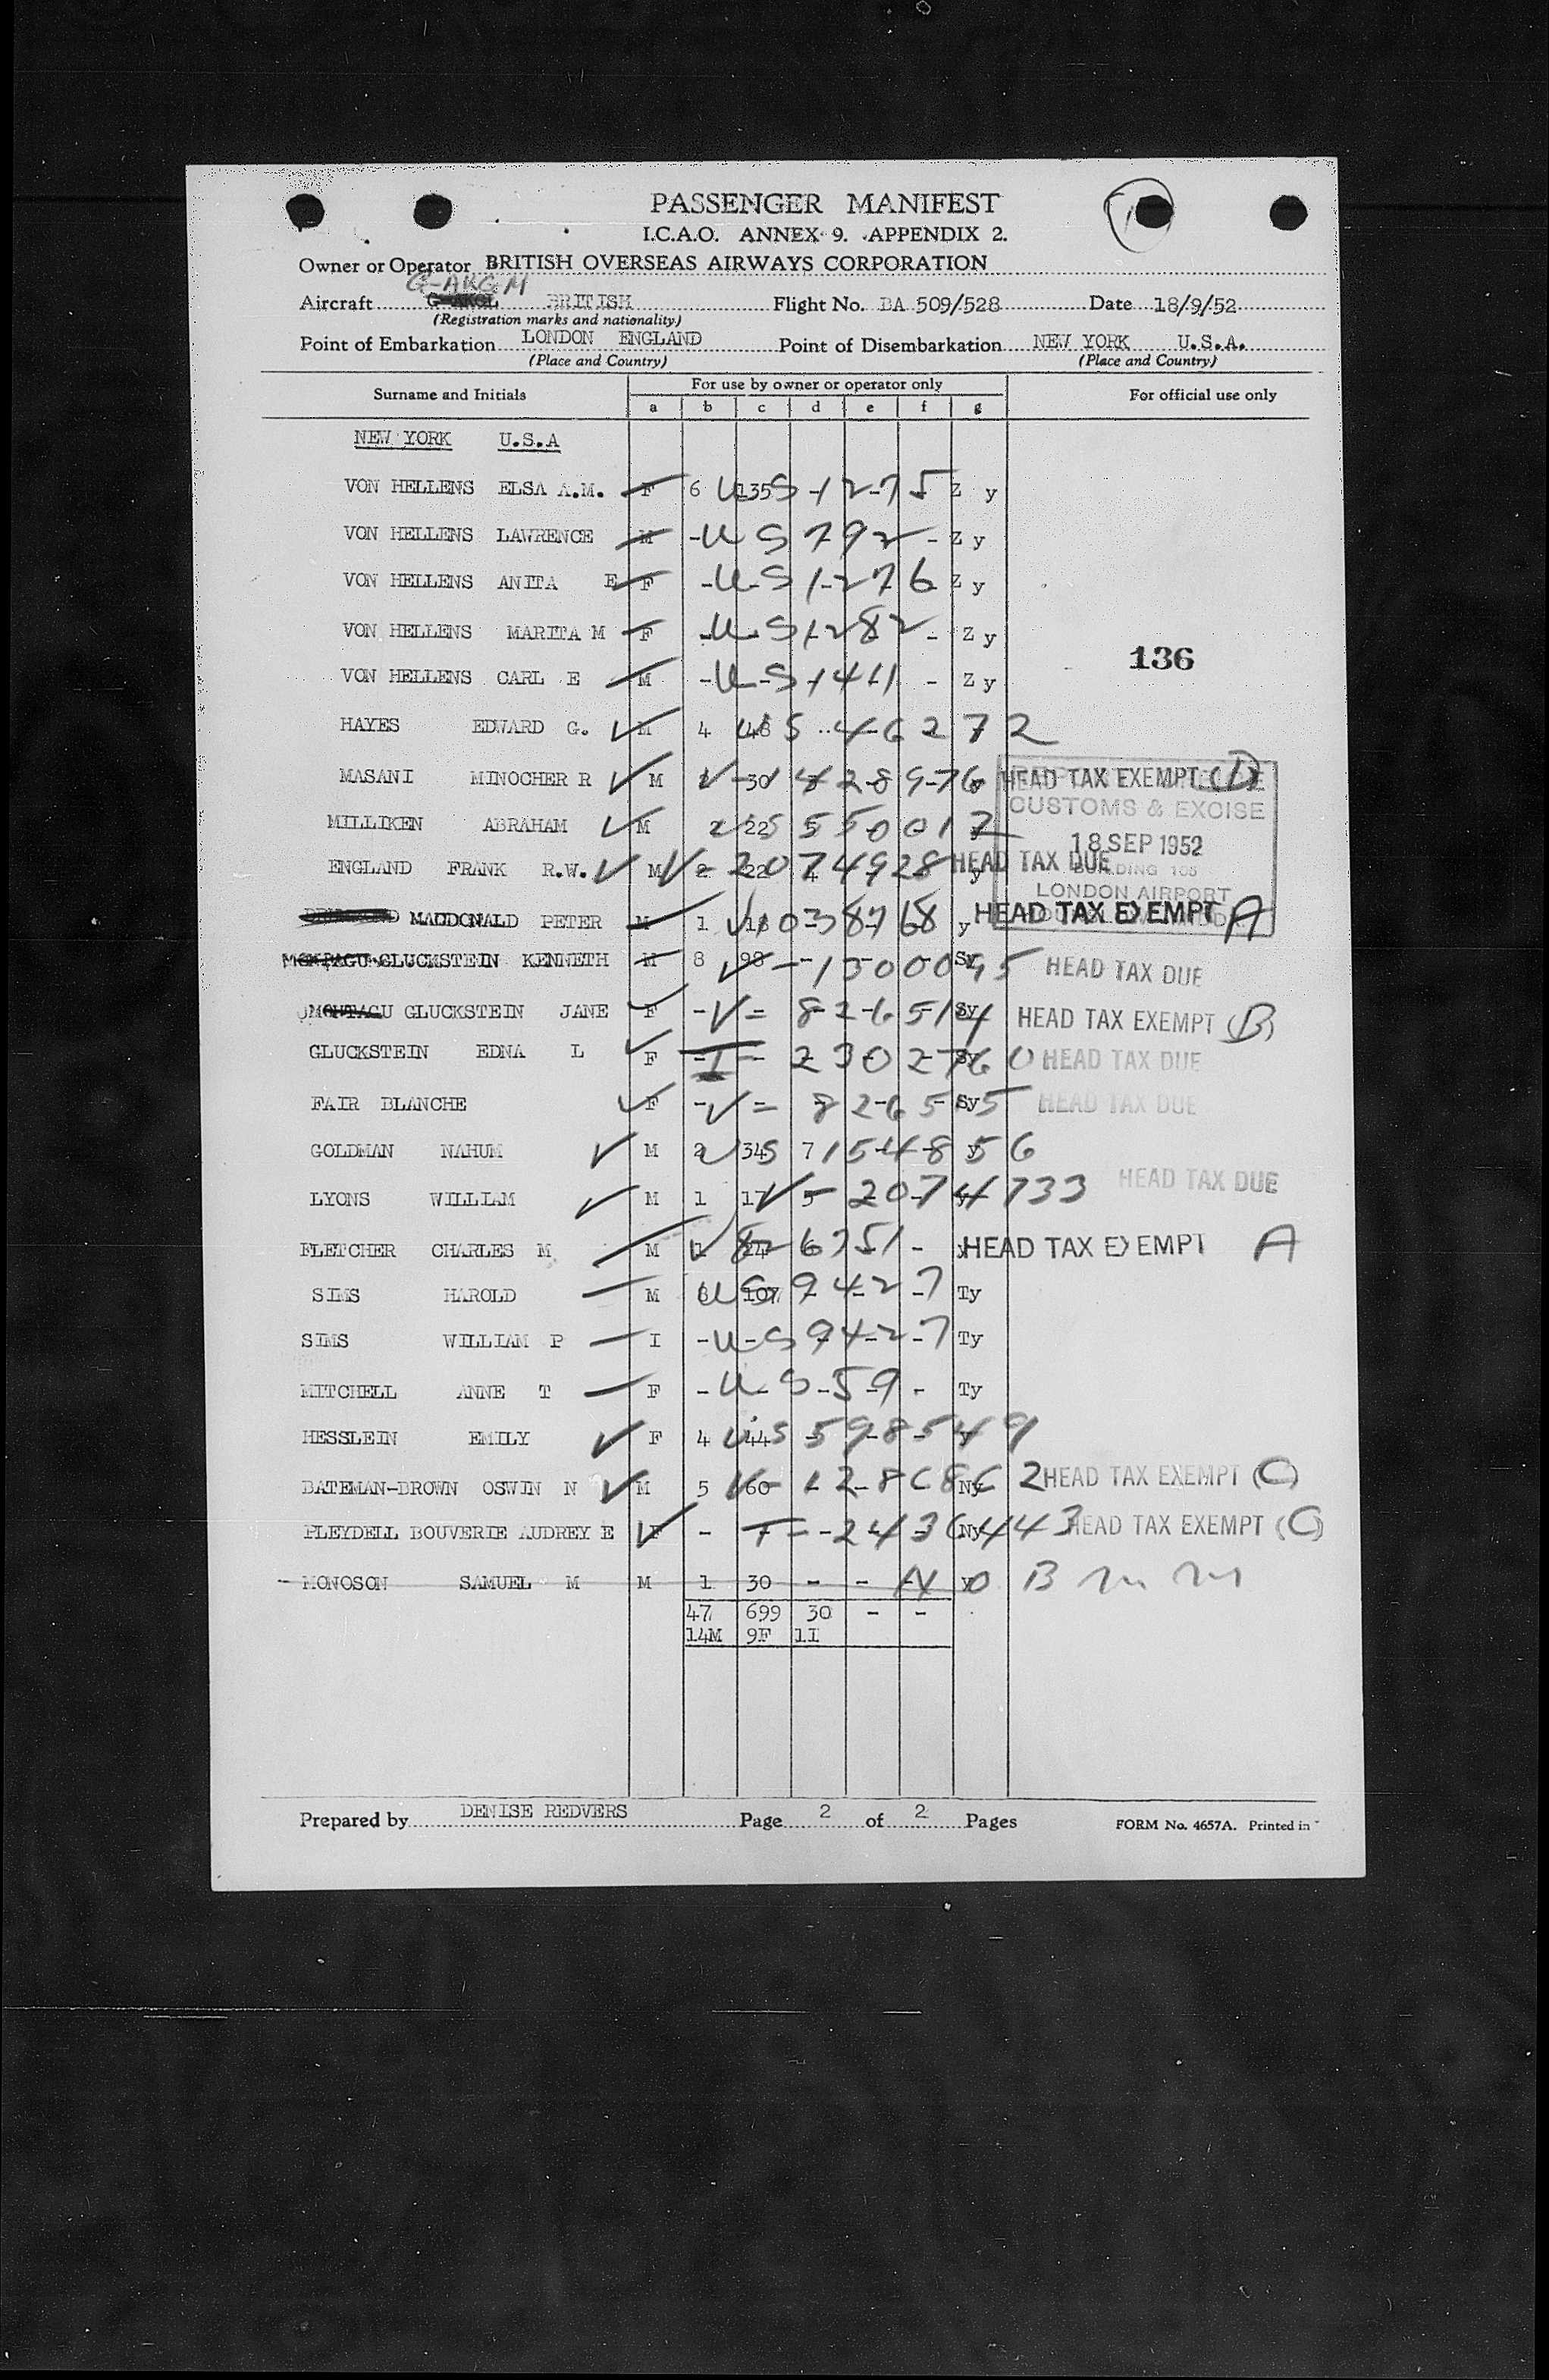 PASSENGER MANIFEST
I.C.A.O. ANNEX 9. APPENDIX 2.
Owner or Operator BRITISH OVERSEAS AIRWAYS CORPORATION
G-AKGM
Aircraft G-AKGL BRITISH Flight No. BA 509/528 Date 18/9/52
(Registration marks and nationality)
Point of Embarkation LONDON ENGLAND Point of Disembarkation NEW YORK U.S.A.
(Place and Country) (Place and Country)
Surname and Initials For use by owner or operator only For official use only
a b c d e f g
NEW YORK U.S.A
VON HELLENS ELSA A.M. F 6 135 US 1275 Z y
VON HELLENS LAWRENCE M - US 792 - Z y
VON HELLENS ANITA E F - US 1276 Z y
VON HELLENS MARITA M F - US 1282 - Z y
136
VON HELLENS CARL E M - US 1411 - Z y
HAYES EDWARD G. M 4 48 US 46272
MASANI MINOCHER R M 30 V 1428976 HEAD TAX EXEMPT (D)
CUSTOMS & EXCISE
MILLIKEN ABRAHAM M 22 5550017
18 SEP 1952
ENGLAND FRANK R.W. M 2 22 4 V 2074928 y HEAD TAX DUE
BUILDING 105
LONDON AIRPORT
MACDONALD PETER M 1 18 V 1038768 y HEAD TAX EXEMPT A
MONTAGU GLUCKSTEIN KENNETH M 8 98 - V 1300095 Sy HEAD TAX DUE
MONTAGU GLUCKSTEIN JANE F - V 826514 Sy HEAD TAX EXEMPT (B)
GLUCKSTEIN EDNA L F - I 2302760 Sy HEAD TAX DUE
FAIR BLANCHE F - V 826515 Sy HEAD TAX DUE
GOLDMAN NAHUM M 2 34 7 US 1548856 y
LYONS WILLIAM M 1 17 5 V 2074733 y HEAD TAX DUE
FLETCHER CHARLES M M 1 24 V 826351 - y HEAD TAX EXEMPT A
SIMS HAROLD M 6 107 US 9427 Ty
SIMS WILLIAM P I - US 9427 Ty
MITCHELL ANNE T F - US 59 - Ty
HESSLEIN EMILY F 4 44 US 598549 y
BATEMAN-BROWN OSWIN N M 5 60 V 1286862 Ny HEAD TAX EXEMPT (C)
PLEYDELL BOUVERIE AUDREY E F - T 2436443 Ny HEAD TAX EXEMPT (C)
MONOSON SAMUEL M M 1 30 - - - y NOB
47 699 30 - -
14M 9F 1I
Prepared by DENISE REDVERS Page 2 of 2 Pages FORM No. 4657A. Printed in